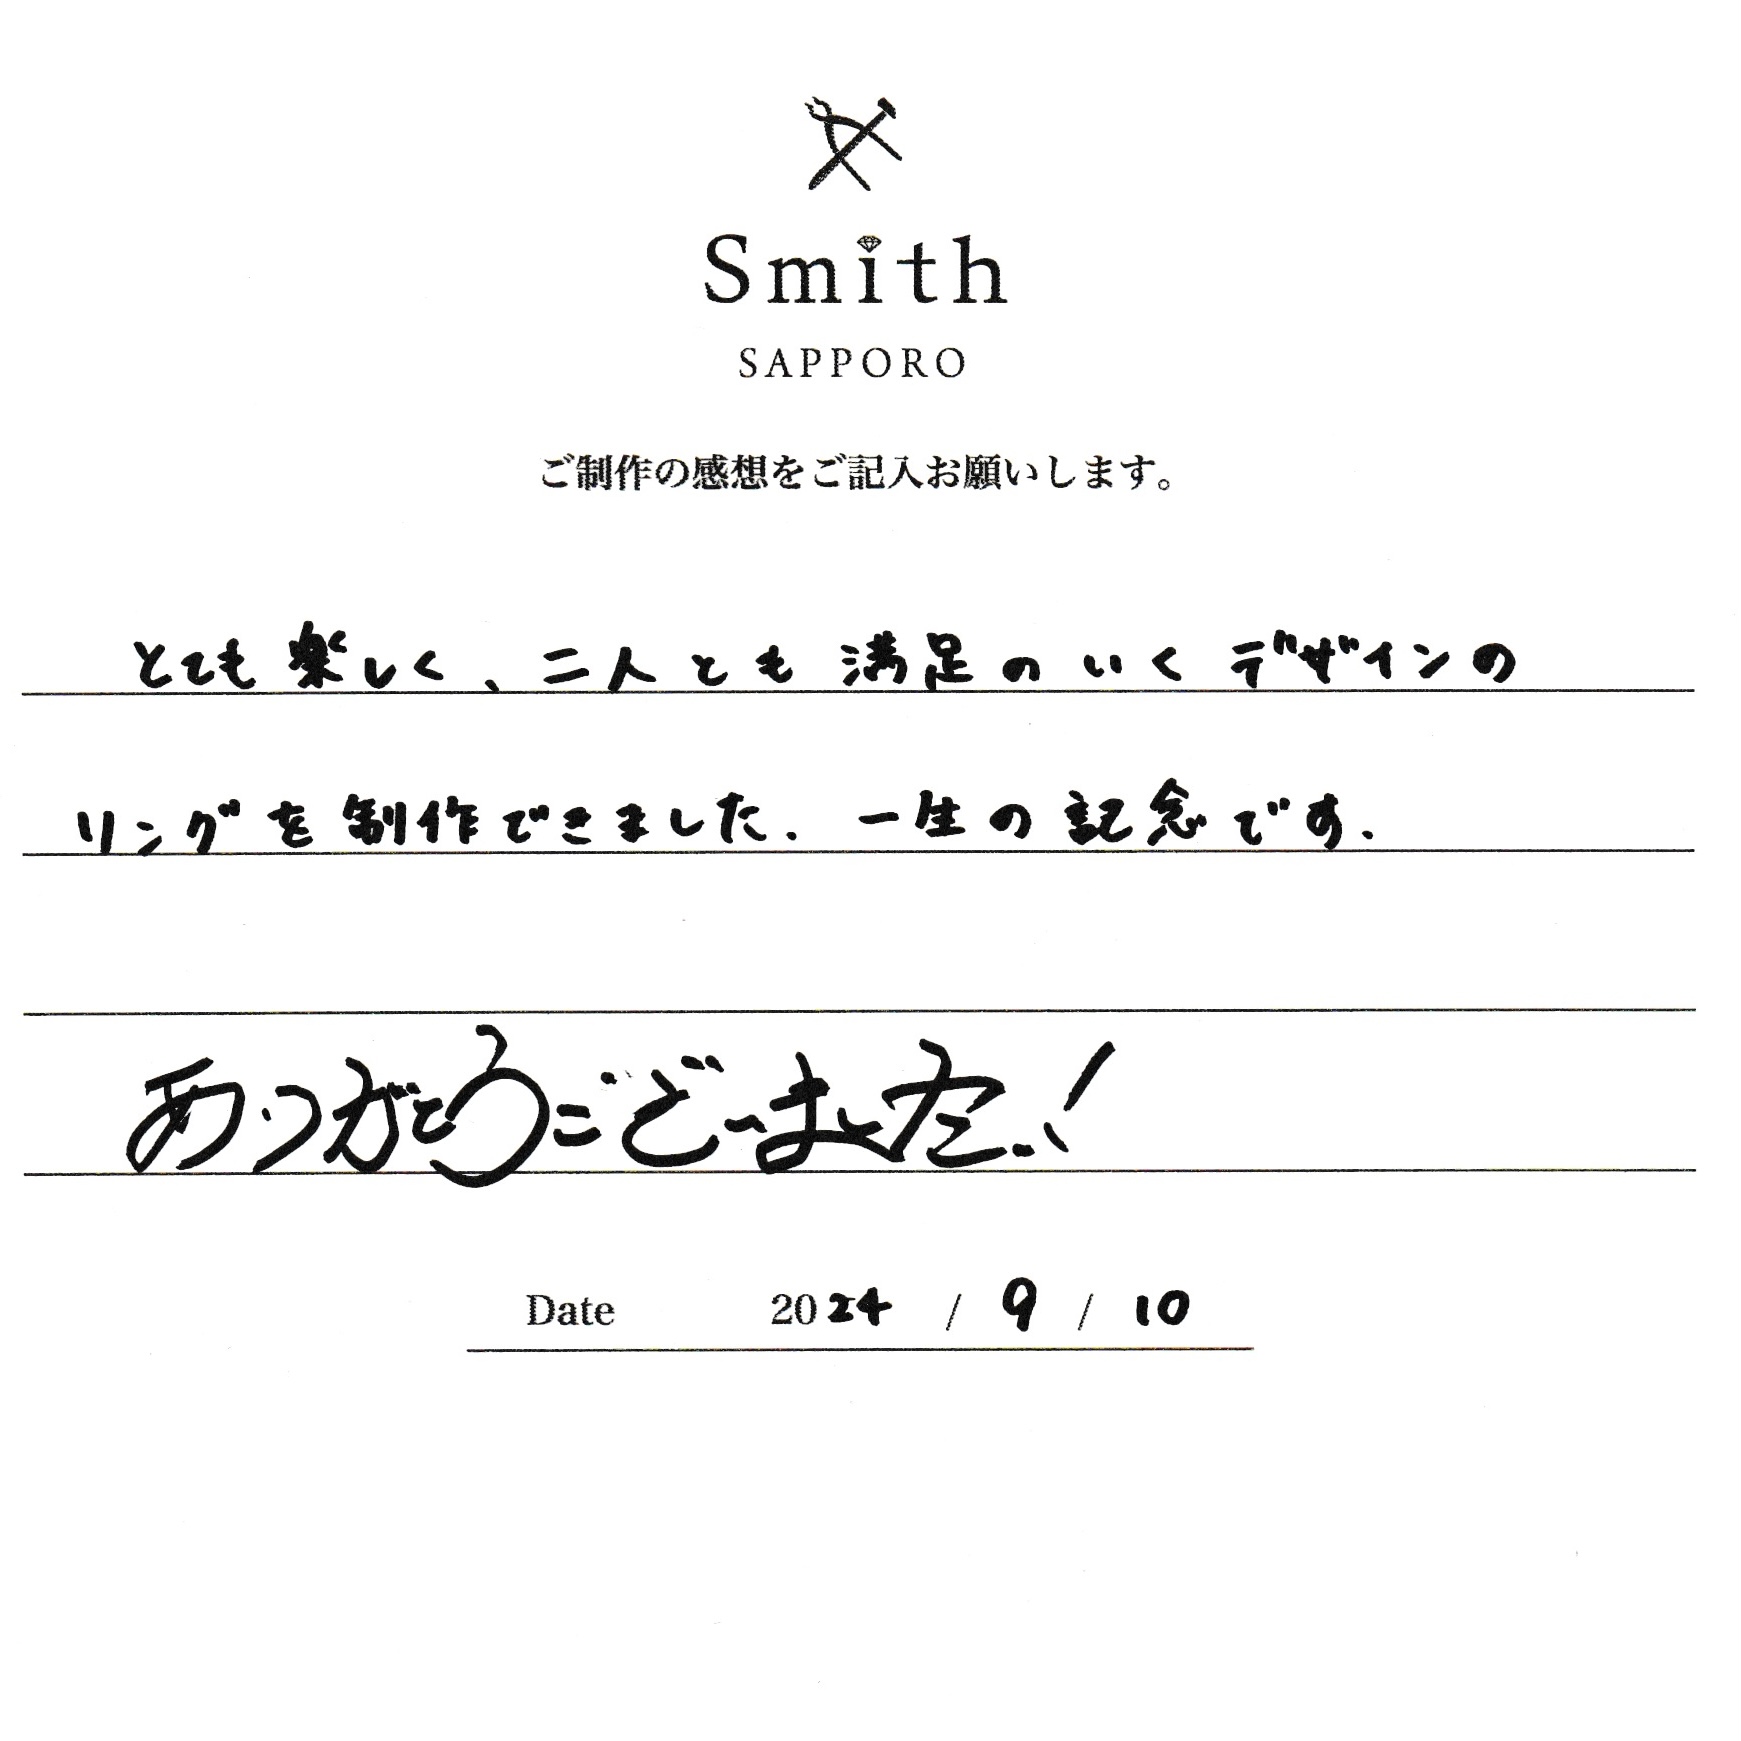 Smith
SAPPORO
ご制作の感想をご記入お願いします。
とても楽しく、二人とも満足のいくデザインの
リングを制作できました. 一生の記念です.
ありがとうございました..!
Date 2024 / 9 / 10